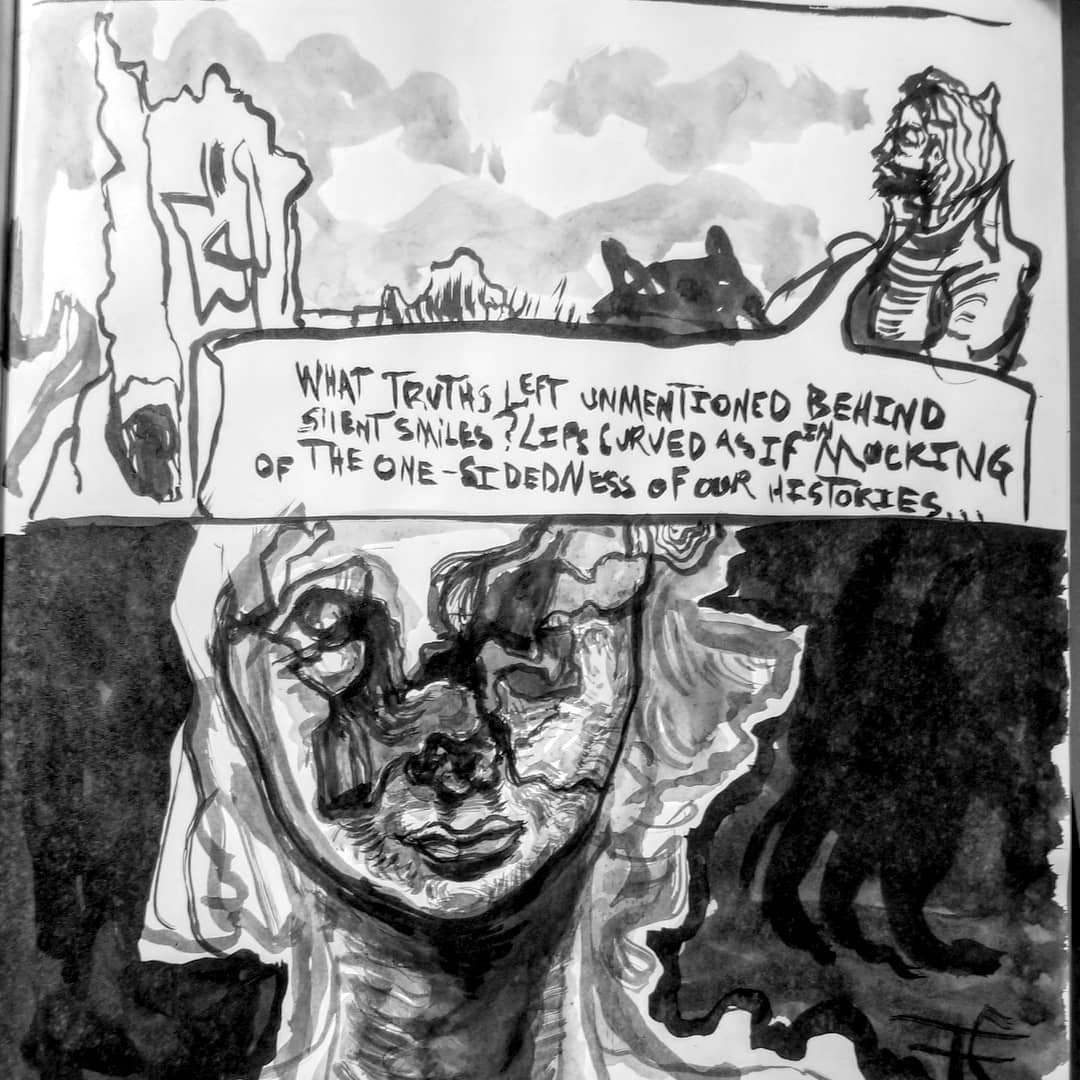 WHAT TRUTHS LEFT UNMENTIONED BEHIND
SILENT SMILES? LIPS CURVED AS IF IN MOCKING
OF THE ONE-SIDEDNESS OF OUR HISTORIES...